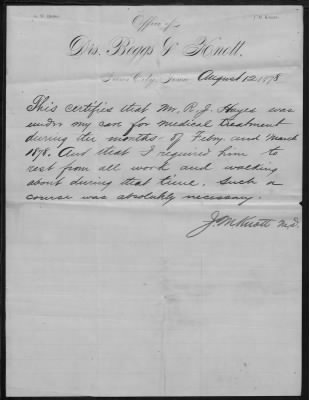 Office of
Drs. Boggs & Knott.
August 12 1878
This certifies that Mr. R. J. Hayes was
under my care for medical treatment
during the months of Feby and March
1878. And that I required him to
rest from all work and walking
about during that time. Such a
course was absolutely necessary.
J. M Knott M.D.